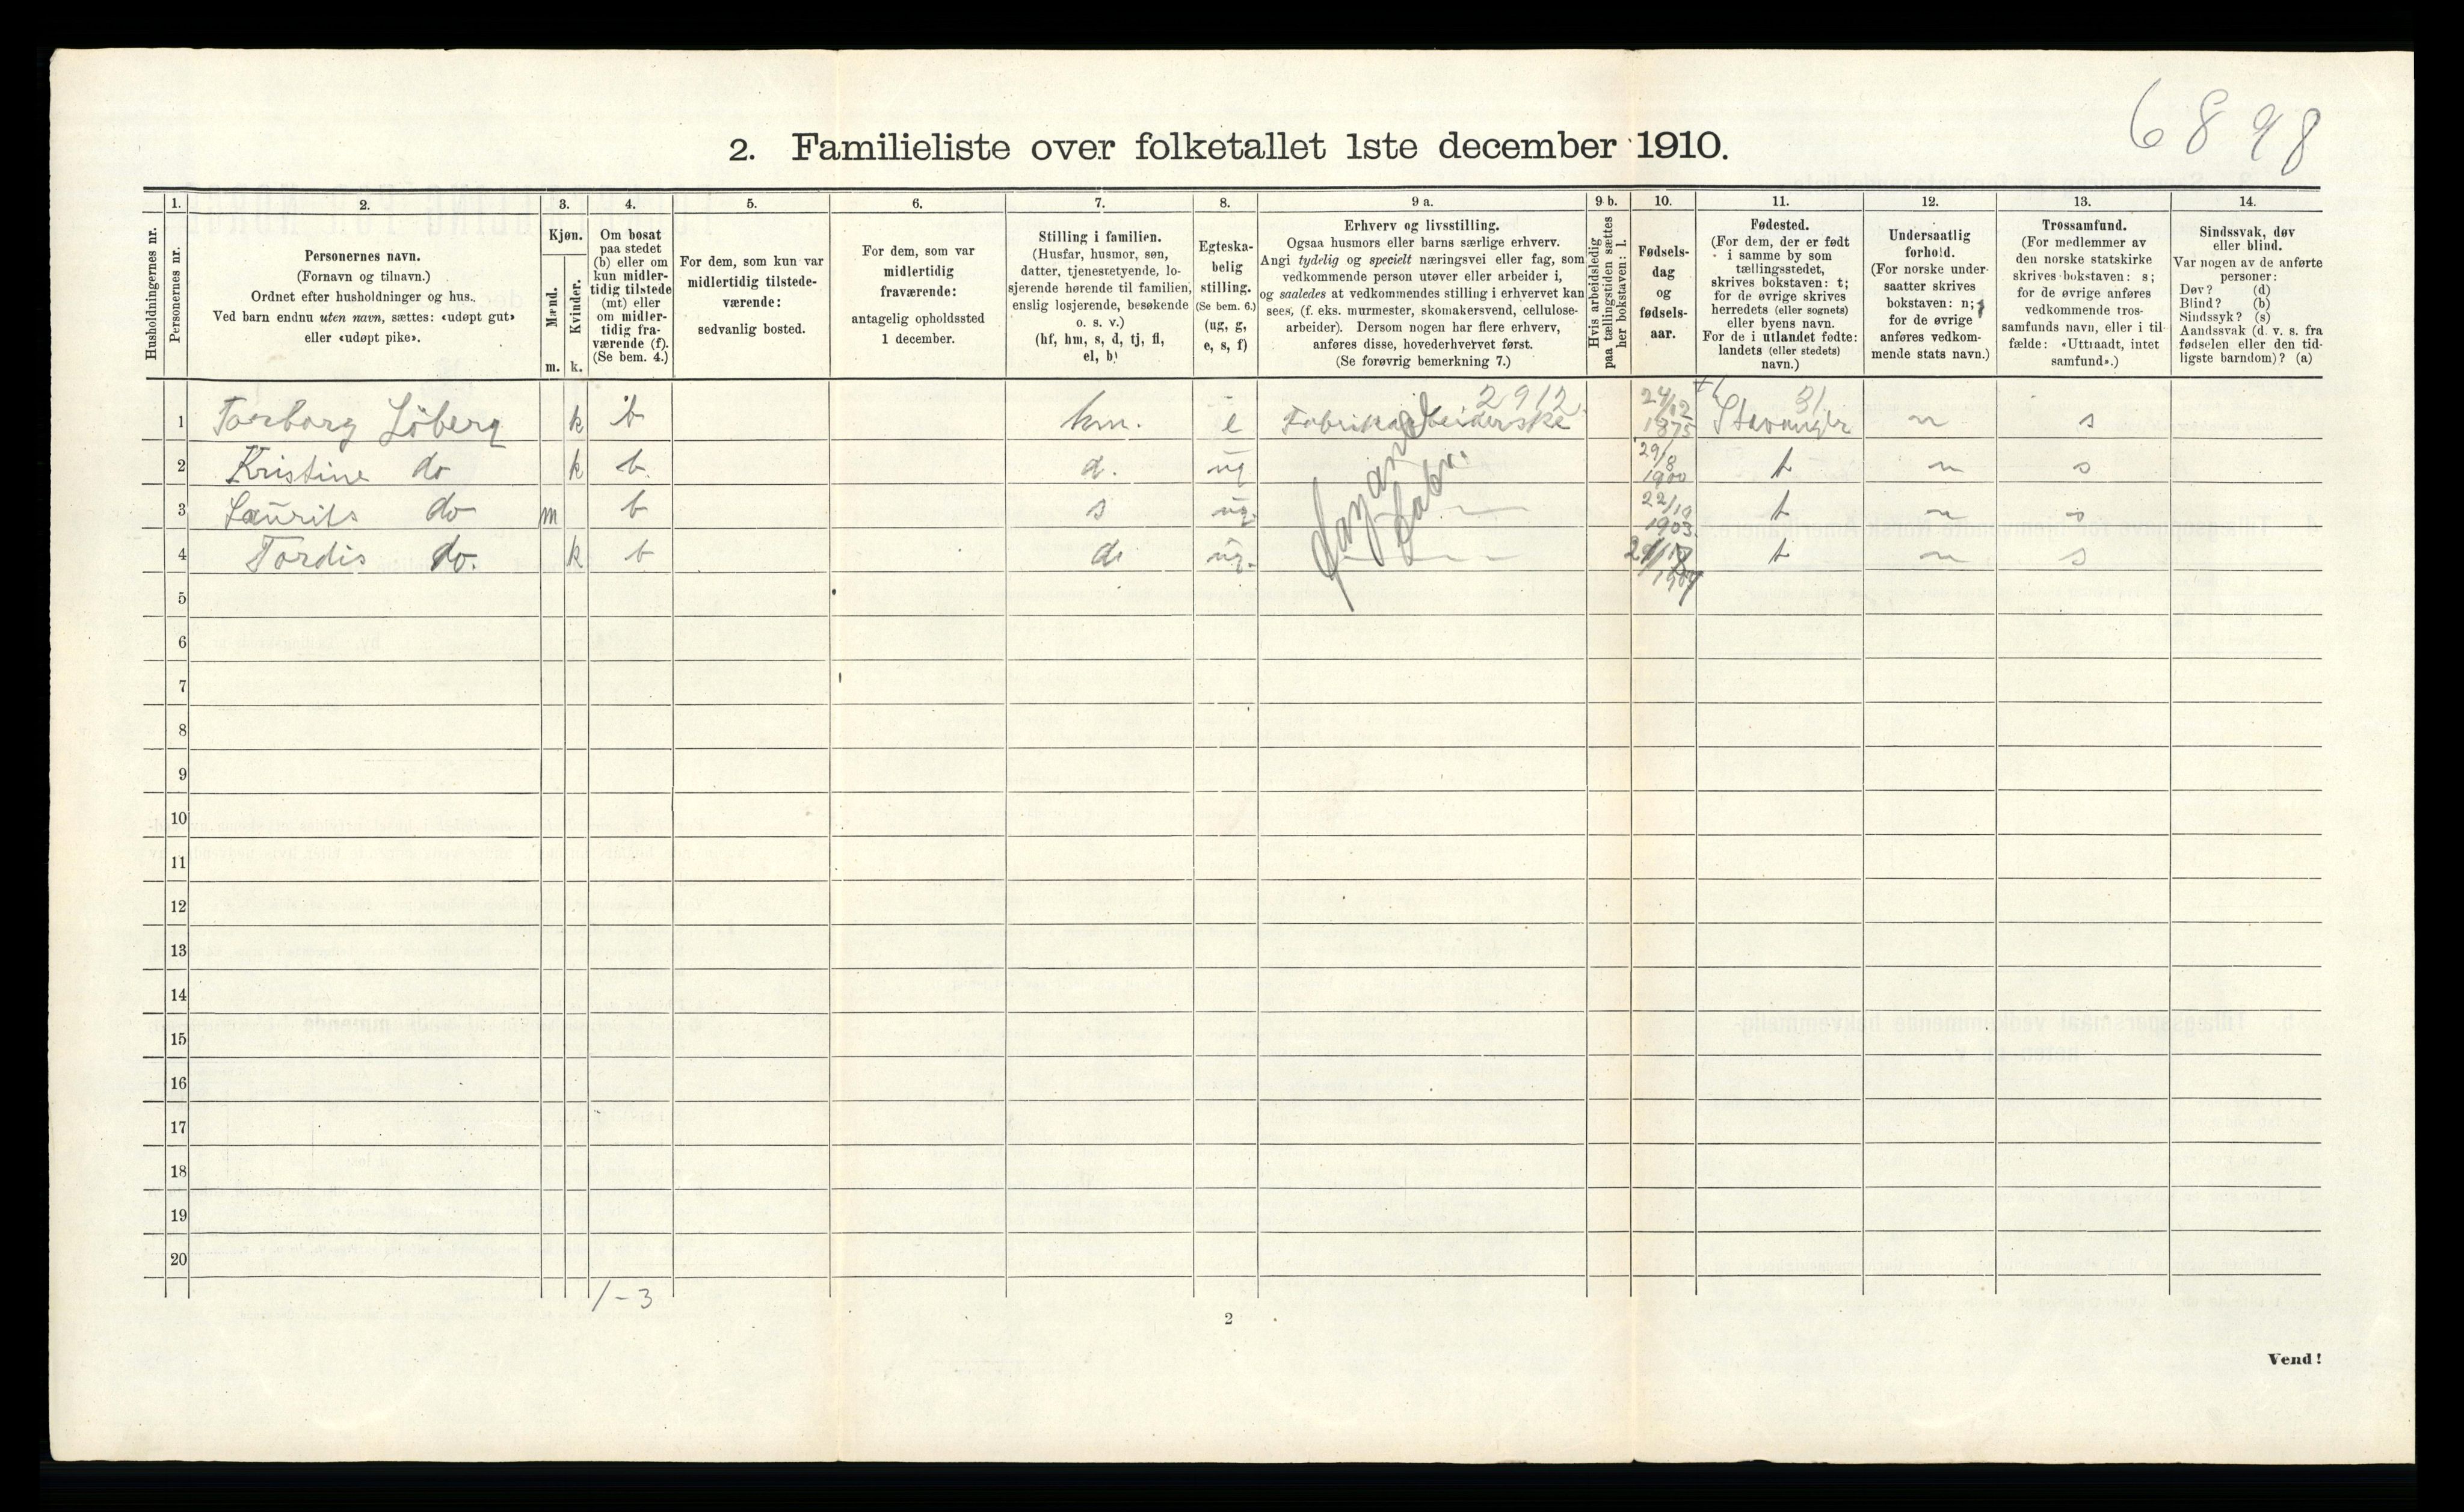 6898
2. Familieliste over folketallet 1ste december 1910.
Husholdningernes nr.
1.
Personernes nr.
2.
Personernes navn.
(Fornavn og tilnavn.)
Ordnet efter husholdninger og hus.
Ved barn endnu uten navn, sættes: «udøpt gut»
eller «udøpt pike».
3.
Kjøn.
Mænd.
Kvinder.
m. k.
4.
Om bosat
paa stedet
(b) eller om
kun midler-
tidig tilstede
(mt) eller
om midler-
tidig fra-
værende (f).
(Se bem. 4.)
5.
For dem, som kun var
midlertidig tilstede-
værende:
sedvanlig bosted.
6.
For dem, som var
midlertidig
fraværende:
antagelig opholdssted
1 december.
7.
Stilling i familien.
(Husfar, husmor, søn,
datter, tjenestetyende, lo-
sjerende hørende til familien,
enslig losjerende, besøkende
o. s. v.)
(hf, hm, s, d, tj, fl,
el, b)
8.
Egteska-
belig
stilling.
(Se bem. 6.)
(ug, g,
e, s, f)
9 a.
Erhverv og livsstilling.
Ogsaa husmors eller barns særlige erhverv.
Angi tydelig og specielt næringsvei eller fag, som
vedkommende person utøver eller arbeider i,
og saaledes at vedkommendes stilling i erhvervet kan
sees, (f. eks. murmester, skomakersvend, cellulose-
arbeider). Dersom nogen har flere erhverv,
anføres disse, hovederhvervet først.
(Se forøvrig bemerkning 7.)
9 b.
Hvis arbeidsledig
paa tællingstiden sættes
her bokstaven: l.
10.
Fødsels-
dag
og
fødsels-
aar.
11.
Fødested.
(For dem, der er født
i samme by som
tællingsstedet,
skrives bokstaven: t;
for de øvrige skrives
herredets (eller sognets)
eller byens navn.
For de i utlandet fødte:
landets (eller stedets)
navn.)
12.
Undersaatlig
forhold.
(For norske under-
saatter skrives
bokstaven: n;
for de øvrige
anføres vedkom-
mende stats navn.)
13.
Trossamfund.
(For medlemmer av
den norske statskirke
skrives bokstaven: s;
for de øvrige anføres
vedkommende tros-
samfunds navn, eller i til-
fælde: «Uttraadt, intet
samfund».)
14.
Sindssvak, døv
eller blind.
Var nogen av de anførte
personer:
Døv? (d)
Blind? (b)
Sindssyk? (s)
Aandssvak (d. v. s. fra
fødselen eller den tid-
ligste barndom)? (a)
2912 31
1 Torborg Löberg k b hm. e Fabrikarbeiderske 24/12 1875 Stavanger n s
2 Kristine do k b. d. ug 29/8 1900 t n s
3 Laurits do m b s ug. 22/10 1903 t n s
4 Tordis do. k b d. ug. t n s
5
6
7
8
9
10
11
12
13
14
15
16
17
18
19
20
1-3
2
Vend!